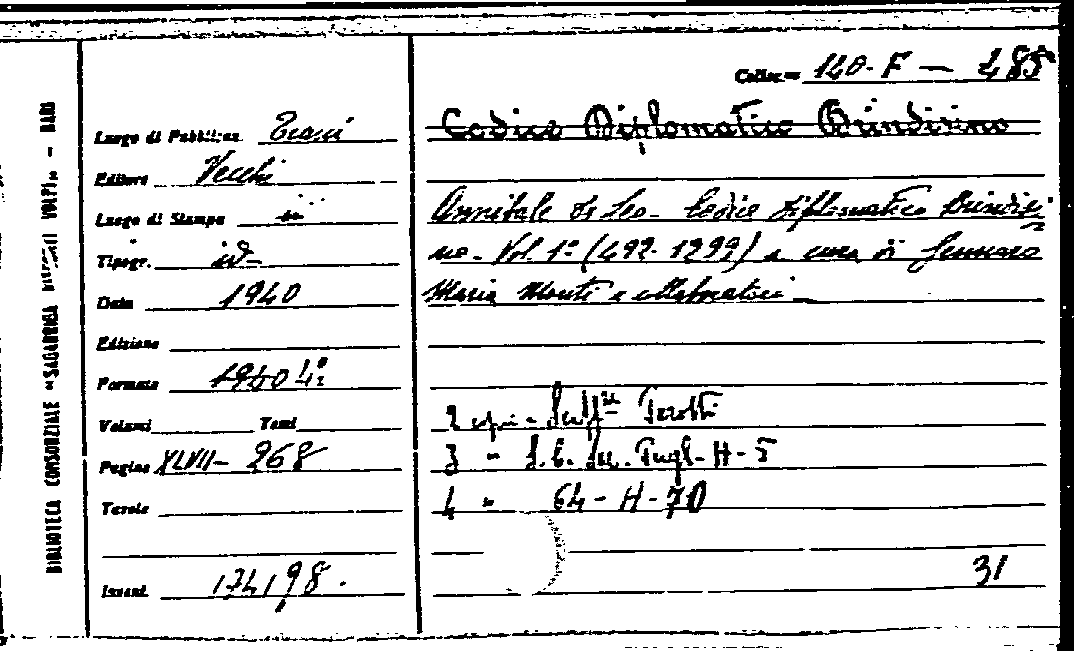 BIBLIOTECA CONSORZIALE "SAGARRIGA VISCONTI VOLPI" - BARI
Luogo di Pubblicaz. Trani
Editore Vecchi
Luogo di Stampa id
Tipogr. id-
Data 1940
Edizione
Formato 1940 4°
Volumi Tomi
Pagine XLVII- 268
Tavole
Invent. 174198.
Colloc.ne 140-F — 485
Codice Diplomatico Brindisino
Annibale De Leo- Codice Diplomatico Brindisi
no- Vol. 1° (492-1299) a cura di Gennaro
Maria Monti e collaboratori-
2 copia-
3 " Pugl-H-5
4 " 64-H-70
31